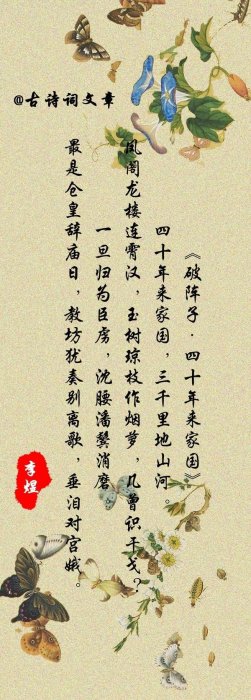 @古诗词文章
《破阵子·四十年来家国》
四十年来家国，三千里地山河。
凤阁龙楼连霄汉，玉树琼枝作烟萝，几曾识干戈？
一旦归为臣虏，沈腰潘鬓消磨
最是仓皇辞庙日，教坊犹奏别离歌，垂泪对宫娥。
李煜